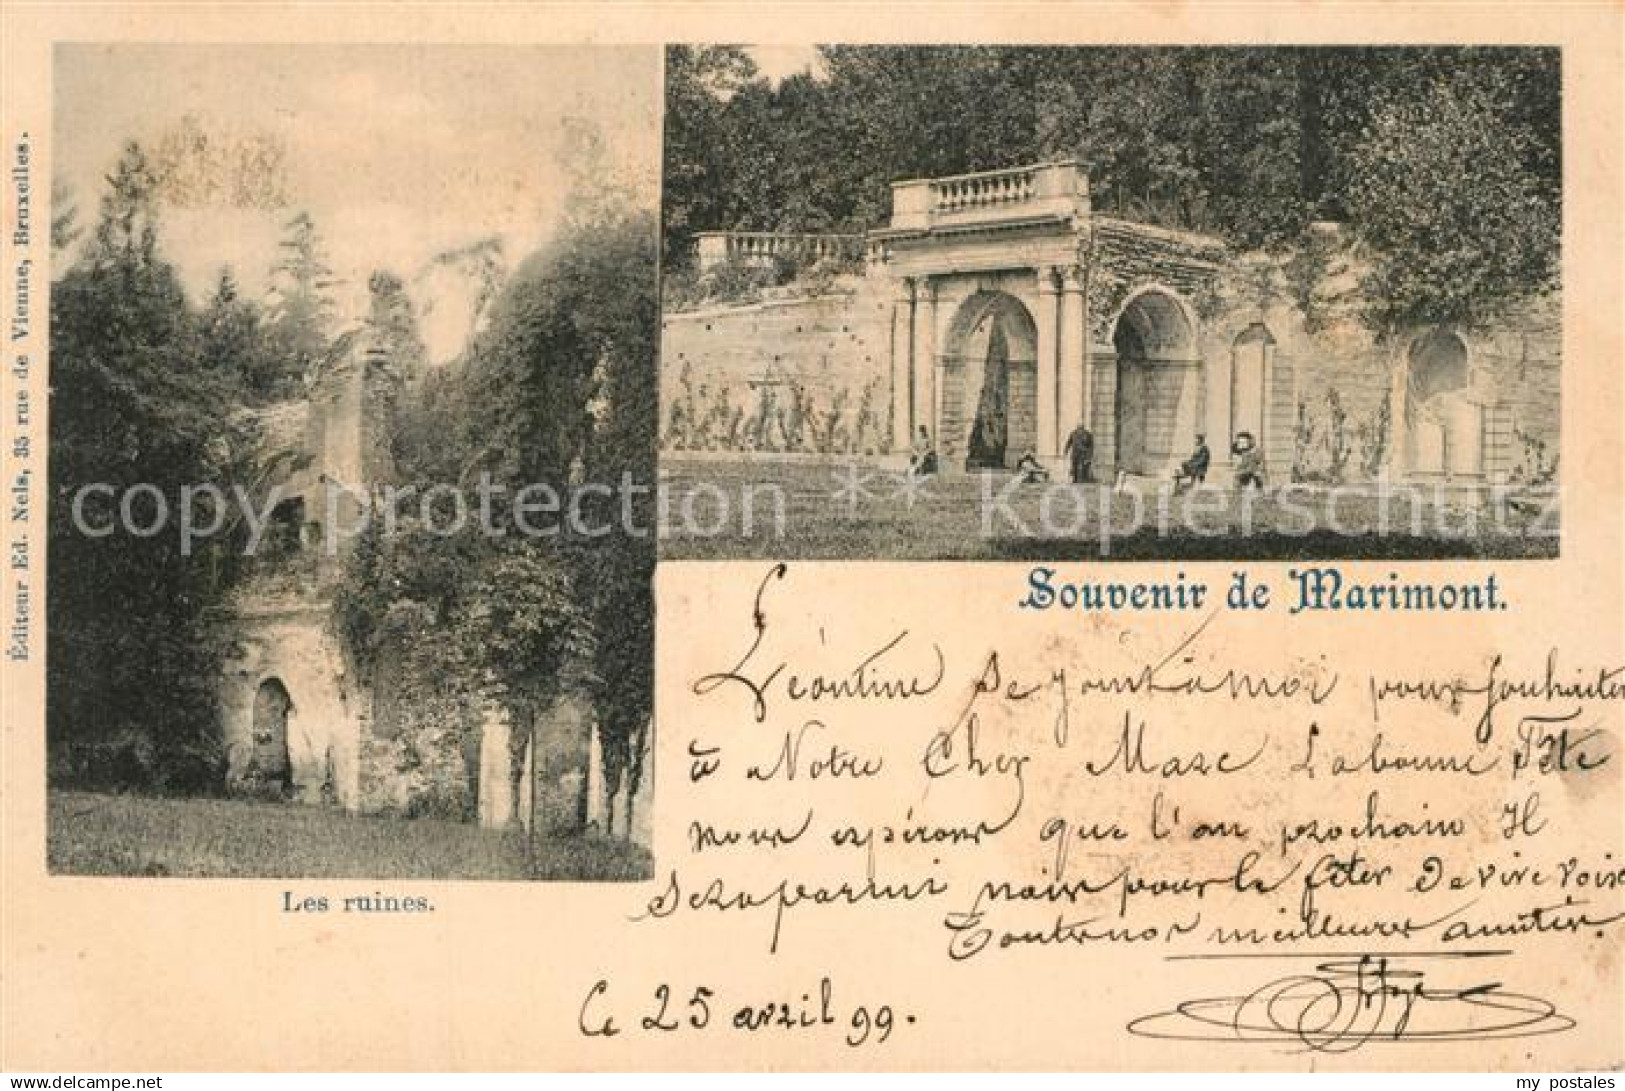 Éditeur Ed. Nels, 35 rue de Vienne, Bruxelles.
copy protection ** Kopierschutz
Souvenir de Marimont.
Les ruines.
Léontine se joint à moi pour souhaiter
à Notre Cher Marc la bonne Fête
nous espérons que l'an prochain Il
sera parmi nous pour le fêter De vive voix
Toutes nos meilleures amitiés.
Ce 25 avril 99.
my postales